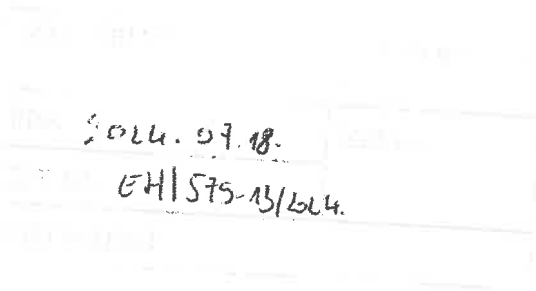 2024. 07. 18.
EH/575-13/2024.